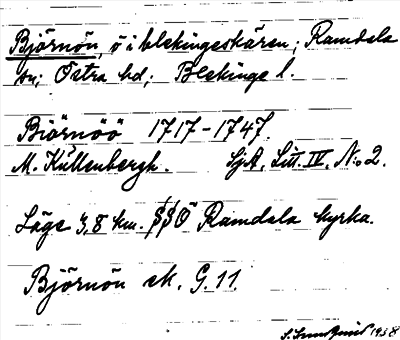 Björnön, ö i blekingeskären; Ramdala
sn; Östra hd; Blekinge l.
Biörnöö 1717-1747.
M. Kullenbergh. SjA, Litt. IV, N:o 2.
Läge 3,8 km. SSÖ Ramdala kyrka.
Björnön ek. G. 11.
1938